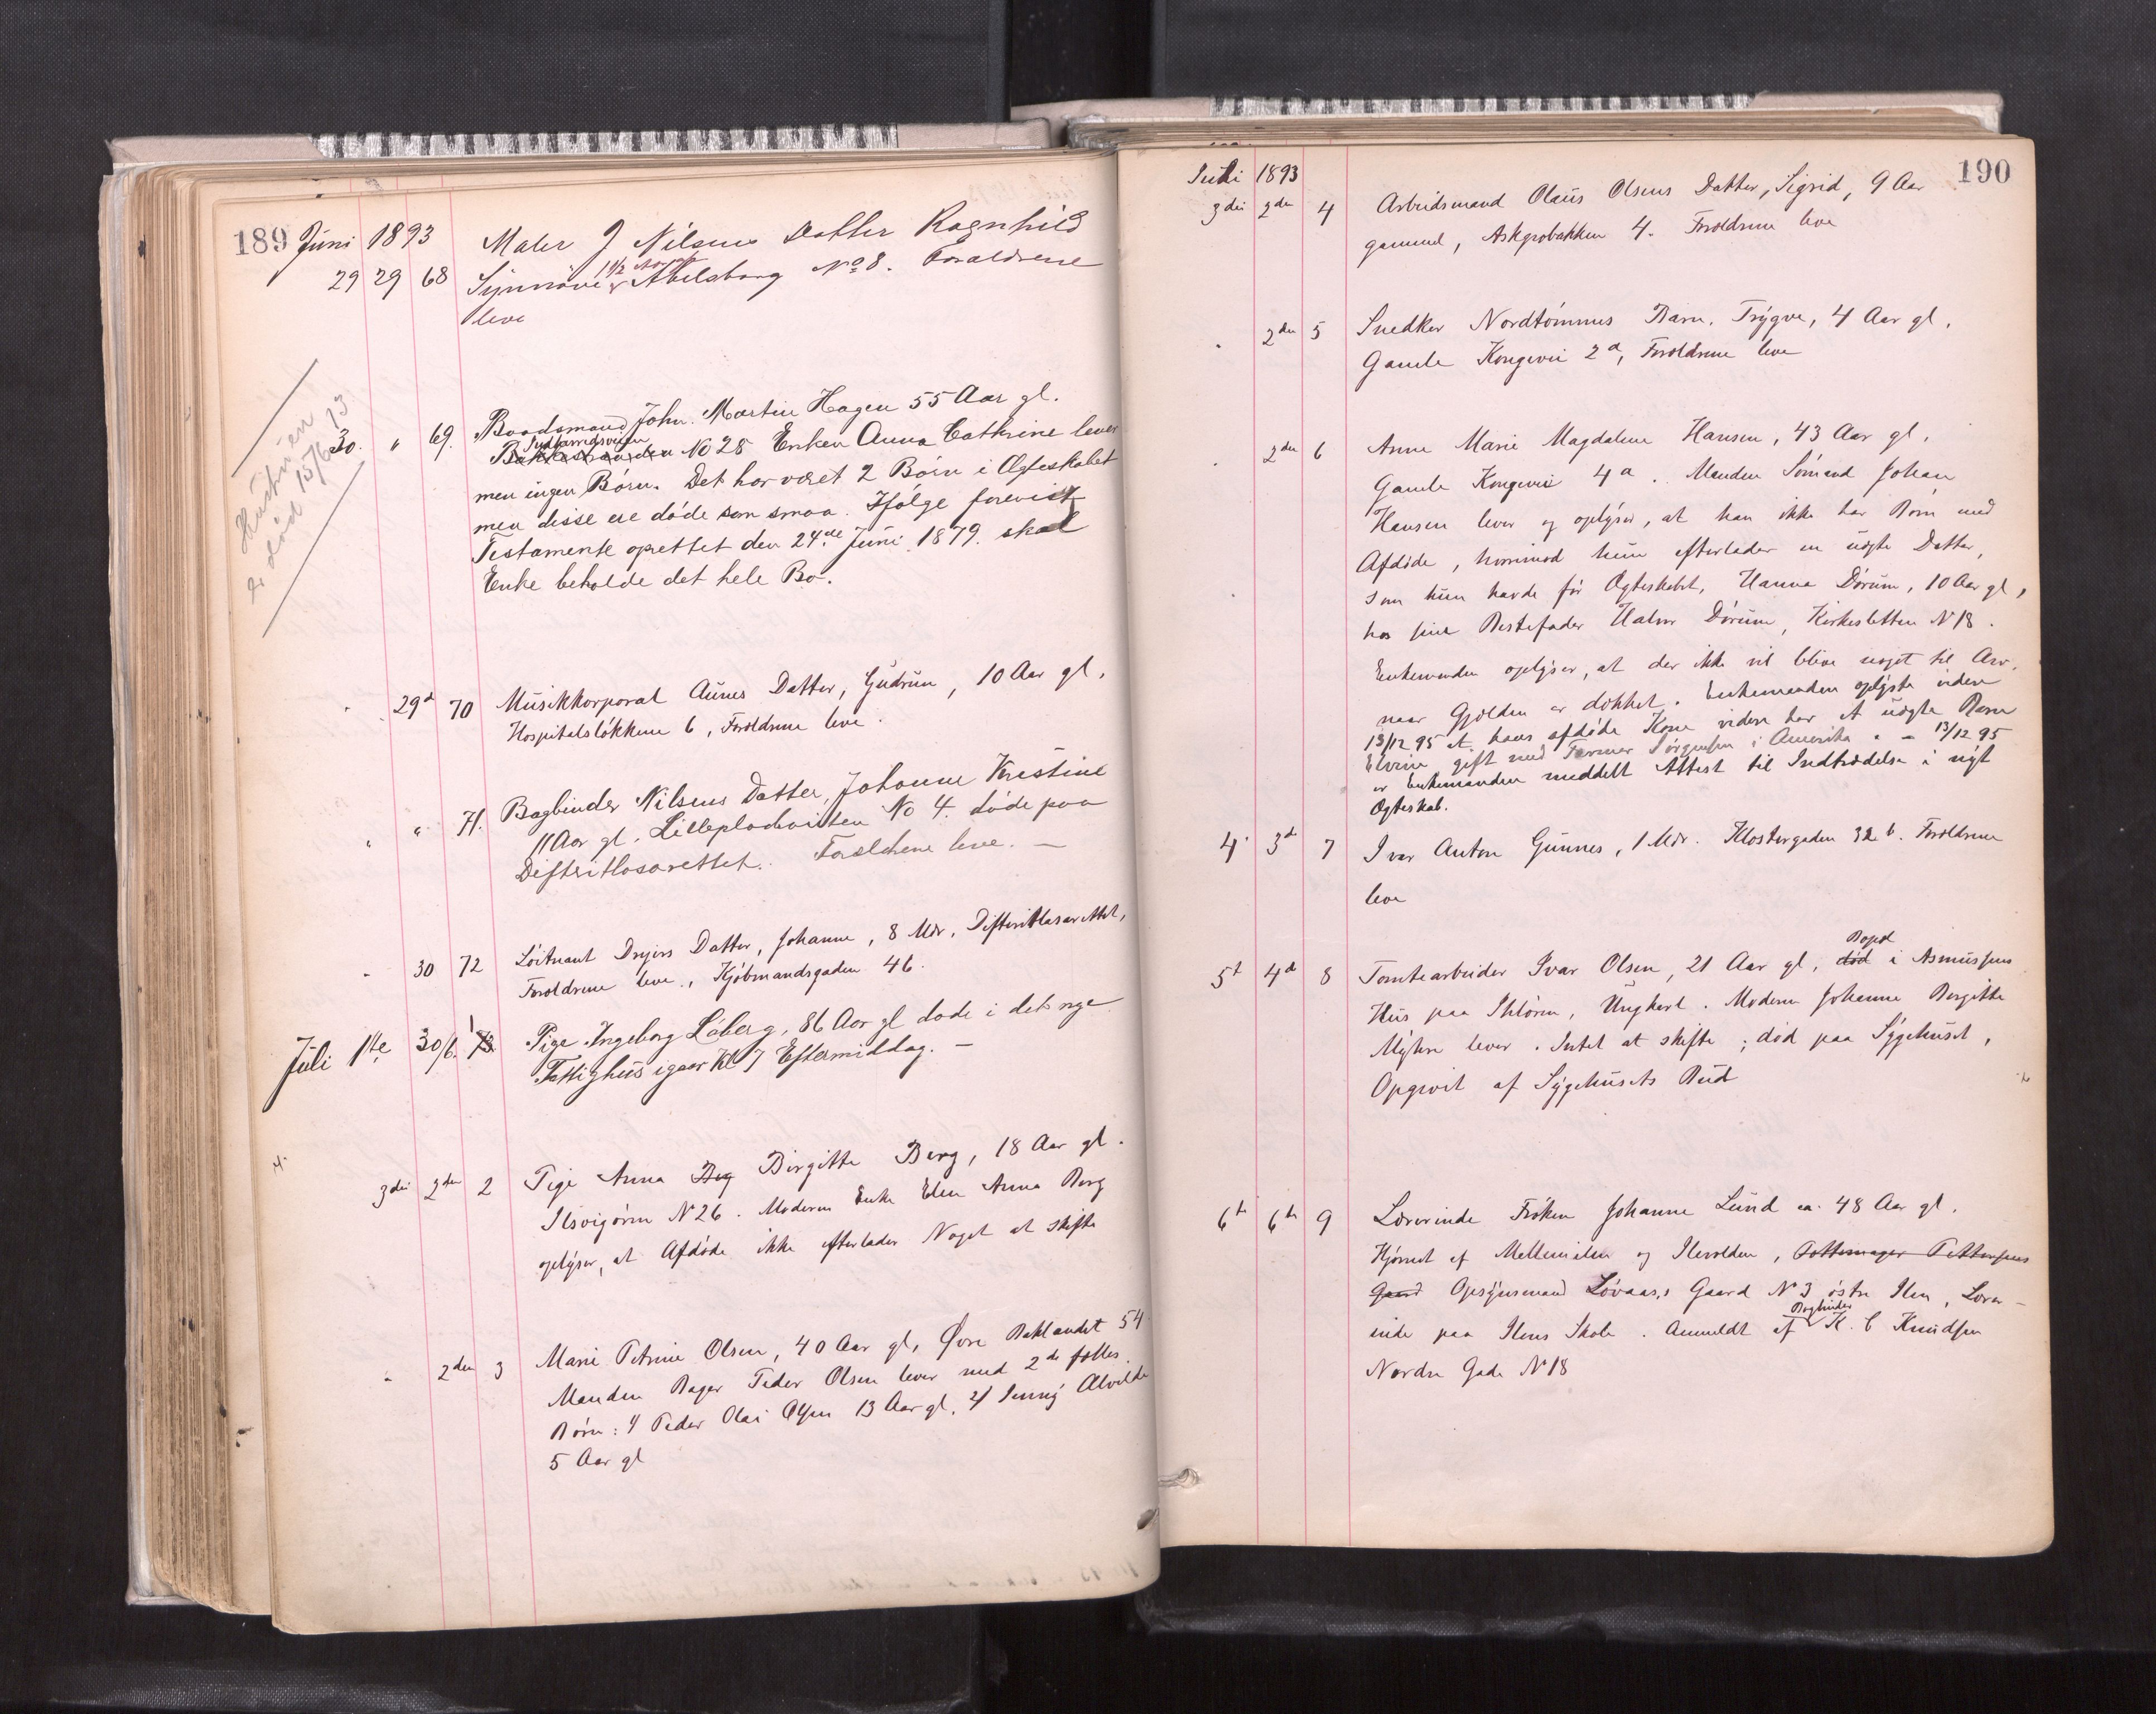 189 Juni 1893
Maler J Nilsens Datter Ragnhild
29 29 68 Synnöve 1 1/2 Aar gl Abelsborg No 8. Forældrene
leve
Hustruen
er död 15/6 13
30. " 69. Baadsmand John. Martin Hagen 55 Aar gl.
Bakkestranden No 28 Enken Anna Cathrine lever
men ingen Börn. Det har været 2 Börn i Ægteskabet
men disse ere döde som smaa. Ifölge forevist
Testamente oprettet den 24de Juni 1879. skal
Enke beholde det hele Bo.
" 29d 70 Musikkorporal Aunes Datter, Gudrun, 10 Aar gl,
Hospitalslökkene 6, Forældrene leve.
" " 71. Bogbinder Nilsens Datter, Johanne Kristine
11 Aar gl. No 4. döde paa
Difteritlasarettet. Forældrene leve. —
" 30 72 Löitnant Dryers Datter, Johanne, 8 Mdr, Difteritlasarettet,
Forældrene leve., Kjöbmandsgaden 46.
Juli 1ste 30/6. 1 73. Pige Ingeborg Löberg, 86 Aar gl döde i det nye
Fattighus igaar Kl 7 Eftermiddag. —
3die 2den 2 Pige Anna Beg Birgitte Berg, 18 Aar gl.
Ilsvigören N 26. Moderen Enke Elen Anna Berg
oplyser, at Afdöde ikke efterlader Noget at skifte
" 2den 3 Marie Petrine Olsen, 40 Aar gl, Övre Baklandet 54.
Manden Bager Peder Olsen lever med 2de fælles
Börn: 1/ Peder Olai Olsen 13 Aar gl, 2/ Jenny Alvilde
5 Aar gl
190
Juli 1893
3die 2den 4 Arbeidsmand Olaus Olsens Datter, Sigrid, 9 Aar
gammel, Askgrobakken 4. Forældrene leve
" 2den 5 Snedker Nordtömmes Barn. Trygve, 4 Aar gl,
Gamle Kongevei 2a, Forældrene leve
" 2den 6 Anne Marie Magdalene Hansen, 43 Aar gl,
Gamle Kongevei 4a. Manden Sömand Johan
Hansen lever og oplyser, at han ikke har Börn med
Afdöde, hvorimod hun efterlader en uægte Datter,
som hun havde för Ægteskabet, Hanna Dörum, 10 Aar gl,
hos sin Bestefader Halvor Dörum, Kirkesletten N 18.
Enkemanden oplyser, at der ikke vil blive noget til Arv,
naar Gjælden er dækket. Enkemanden oplyste videre
13/12 95 at hans afdöde Kone videre har et uægte Barn
Elvine gift med Farmer Jörgensen i Amerika " - 13/12 95
er Enkemanden meddelt Attest til Indtrædelse i nyt
Ægteskab.
4' 3d 7 Ivar Anton Gunnes, 1 Mdr. Klostergaden 32 b. Forældrene
leve
5t 4d 8 Tomtearbeider Ivar Olsen, 21 Aar gl, död Bopæl i Asmussens
Hus paa Ihlören, Ungkarl. Moderen Johanne Bergitte
Myhre lever. Intet at skifte; död paa Sygehuset,
Opgivet af Sygehusets Bud
6t 6t 9 Lærerinde Fröken Johanne Lund ca. 48 Aar gl,
Hjörnet af Mellemilen og Ilevolden, Pottemager Pettersens
Gaard Opsynsmand Lövaas's Gaard N 3 östre Ilen, Lærer-
inde paa Ilens Skole. Anmeldt af Bogbinder K. C Knudsen
Nordre Gade N 18